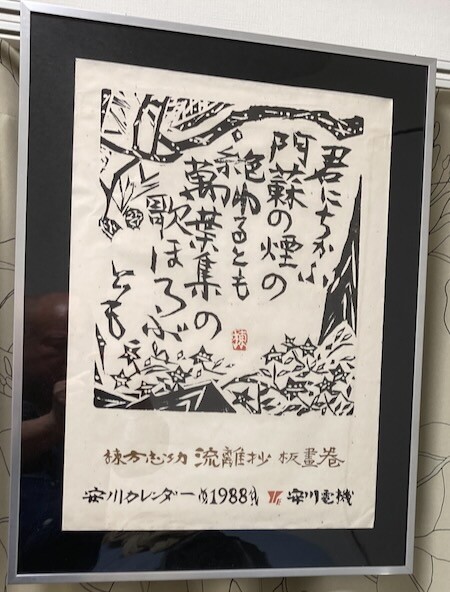 君にちかふ
阿蘇の煙の
絶ゆるとも
萬葉集の
歌ほろぶ
とも
棟
棟方志功 流離抄 板畫巻
安川カレンダー 1988 安川電機